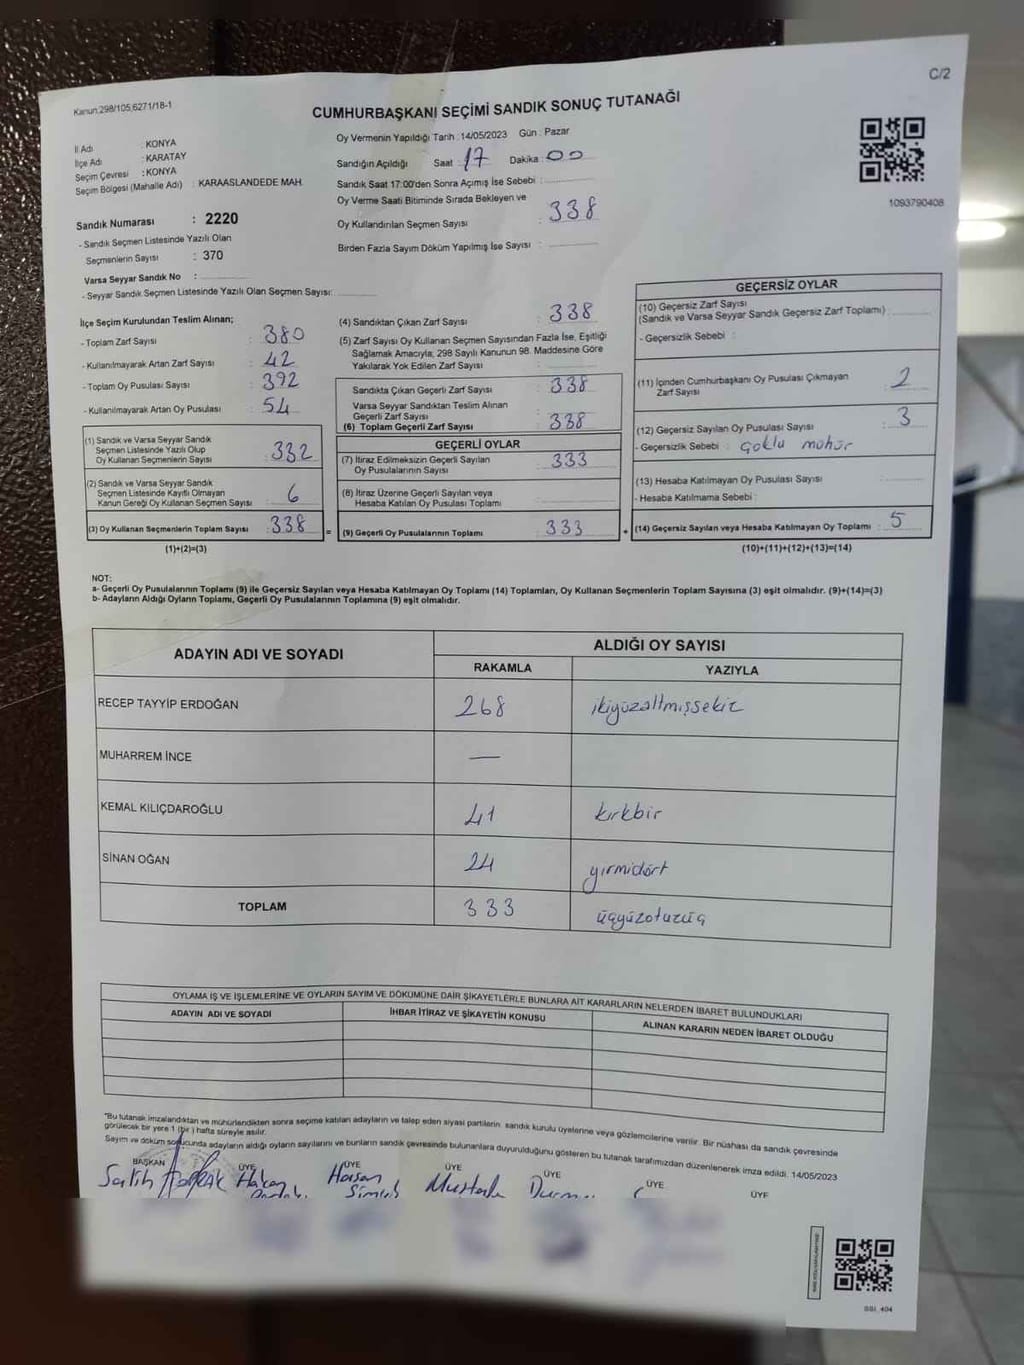 C/2
Kanun:298/105,6271/18-1
CUMHURBAŞKANI SEÇİMİ SANDIK SONUÇ TUTANAĞI
İl Adı : KONYA
İlçe Adı : KARATAY
Seçim Çevresi : KONYA
Seçim Bölgesi (Mahalle Adı) : KARAASLANDEDE MAH.
Sandık Numarası : 2220
- Sandık Seçmen Listesinde Yazılı Olan
Seçmenlerin Sayısı : 370
Varsa Seyyar Sandık No :
- Seyyar Sandık Seçmen Listesinde Yazılı Olan Seçmen Sayısı:
Oy Vermenin Yapıldığı Tarih : 14/05/2023 Gün : Pazar
Sandığın Açıldığı Saat : 17 Dakika : 00
Sandık Saat 17:00'den Sonra Açımış İse Sebebi :
Oy Verme Saati Bitiminde Sırada Bekleyen ve
Oy Kullandırılan Seçmen Sayısı : 338
Birden Fazla Sayım Döküm Yapılmış İse Sayısı :
1093790408
İlçe Seçim Kurulundan Teslim Alınan;
- Toplam Zarf Sayısı : 380
- Kullanılmayarak Artan Zarf Sayısı : 42
- Toplam Oy Pusulası Sayısı : 392
- Kullanılmayarak Artan Oy Pusulası : 54
(1) Sandık ve Varsa Seyyar Sandık
Seçmen Listesinde Yazılı Olup
Oy Kullanan Seçmenlerin Sayısı : 332
(2) Sandık ve Varsa Seyyar Sandık
Seçmen Listesinde Kayıtlı Olmayan
Kanun Gereği Oy Kullanan Seçmen Sayısı : 6
(3) Oy Kullanan Seçmenlerin Toplam Sayısı : 338 =
(1)+(2)=(3)
(4) Sandıktan Çıkan Zarf Sayısı : 338
(5) Zarf Sayısı Oy Kullanan Seçmen Sayısından Fazla İse, Eşitliği
Sağlamak Amacıyla, 298 Sayılı Kanunun 98. Maddesine Göre
Yakılarak Yok Edilen Zarf Sayısı :
Sandıkta Çıkan Geçerli Zarf Sayısı : 338
Varsa Seyyar Sandıktan Teslim Alınan
Geçerli Zarf Sayısı :
(6) Toplam Geçerli Zarf Sayısı : 338
GEÇERLİ OYLAR
(7) İtiraz Edilmeksizin Geçerli Sayılan
Oy Pusulalarının Sayısı : 333
(8) İtiraz Üzerine Geçerli Sayılan veya
Hesaba Katılan Oy Pusulası Toplamı :
(9) Geçerli Oy Pusulalarının Toplamı : 333 +
GEÇERSİZ OYLAR
(10) Geçersiz Zarf Sayısı
(Sandık ve Varsa Seyyar Sandık Geçersiz Zarf Toplamı) :
- Geçersizlik Sebebi :
(11) İçinden Cumhurbaşkanı Oy Pusulası Çıkmayan
Zarf Sayısı : 2
(12) Geçersiz Sayılan Oy Pusulası Sayısı : 3
- Geçersizlik Sebebi : Çoklu mühür
(13) Hesaba Katılmayan Oy Pusulası Sayısı :
- Hesaba Katılmama Sebebi :
(14) Geçersiz Sayılan veya Hesaba Katılmayan Oy Toplamı : 5
(10)+(11)+(12)+(13)=(14)
NOT:
a- Geçerli Oy Pusulalarının Toplamı (9) ile Geçersiz Sayılan veya Hesaba Katılmayan Oy Toplamı (14) Toplamları, Oy Kullanan Seçmenlerin Toplam Sayısına (3) eşit olmalıdır. (9)+(14)=(3)
b- Adayların Aldığı Oyların Toplamı, Geçerli Oy Pusulalarının Toplamına (9) eşit olmalıdır.
ADAYIN ADI VE SOYADI
ALDIĞI OY SAYISI
RAKAMLA YAZIYLA
RECEP TAYYİP ERDOĞAN 268 ikiyüzaltmışsekiz
MUHARREM İNCE —
KEMAL KILIÇDAROĞLU 41 kırkbir
SİNAN OĞAN 24 yirmidört
TOPLAM 333 üçyüzotuzüç
OYLAMA İŞ VE İŞLEMLERİNE VE OYLARIN SAYIM VE DÖKÜMÜNE DAİR ŞİKAYETLERLE BUNLARA AİT KARARLARIN NELERDEN İBARET BULUNDUKLARI
ADAYIN ADI VE SOYADI İHBAR İTİRAZ VE ŞİKAYETİN KONUSU ALINAN KARARIN NEDEN İBARET OLDUĞU
*Bu tutanak imzalandıktan ve mühürlendikten sonra seçime katılan adayların ve talep eden siyasi partilerin sandık kurulu üyelerine veya gözlemcilerine verilir. Bir nüshası da sandık çevresinde
görülecek bir yere 1 (bir) hafta süreyle asılır.
Sayım ve döküm sonucunda adayların aldığı oyların sayılarını ve bunların sandık çevresinde bulunanlara duyurulduğunu gösteren bu tutanak tarafımızdan düzenlenerek imza edildi. 14/05/2023
BAŞKAN ÜYE ÜYE ÜYE ÜYE ÜYE ÜYE
Salih Hakan Hasan Mustafa
Şimşek